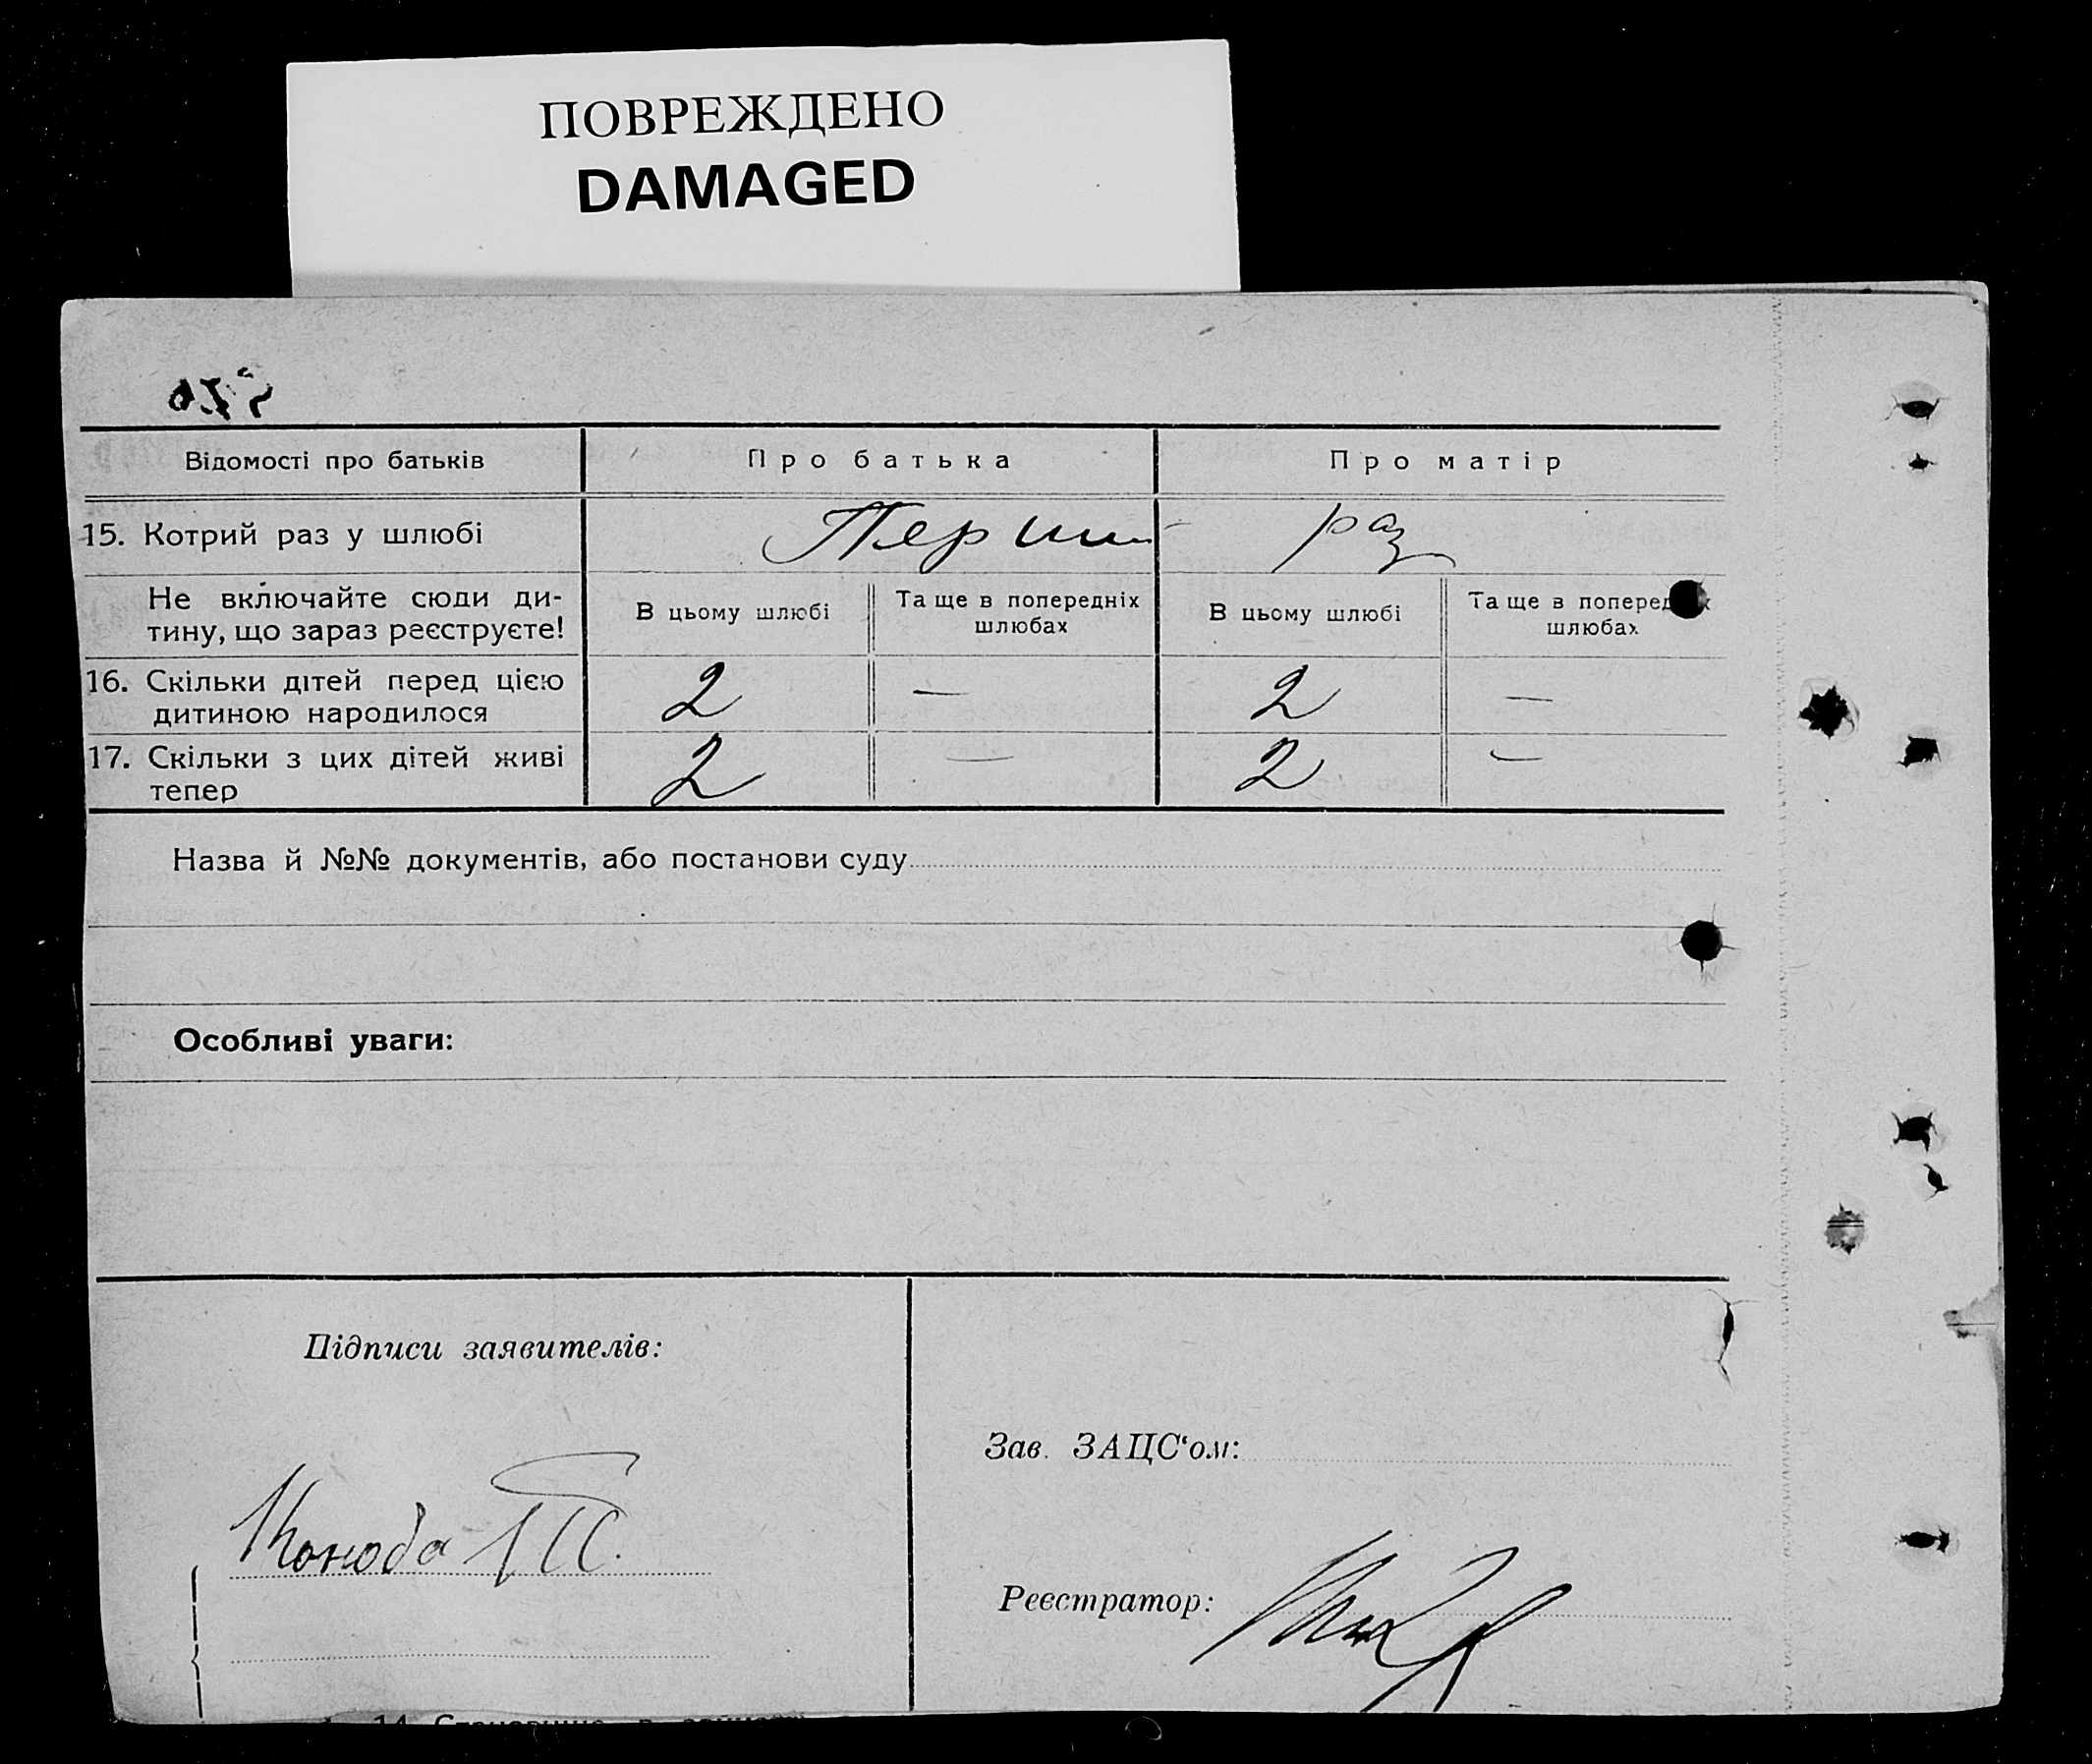 ПОВРЕЖДЕНО
DAMAGED
Відомості про батьків
Про батька
Про матір
15. Котрий раз у шлюбі
Перший раз
Не включайте сюди ди-
тину, що зараз реєструєте!
В цьому шлюбі
Та ще в попередніх
шлюбах
В цьому шлюбі
Та ще в
шлюбах
16. Скільки дітей перед цією
дитиною народилося
2 — 2 —
17. Скільки з цих дітей живі
тепер
2 — 2 —
Назва й №№ документів, або постанови суду
Особливі уваги:
Підписи заявителів:
Зав. ЗАЦС‘ом:
Реєстратор: